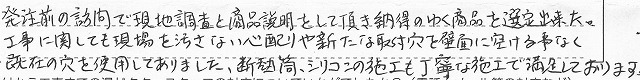 発注前の訪問で現地調査と商品説明をして頂き納得のゆく商品を選定出来た。
工事に関しても現場を汚さない心配りや新たな取付穴を壁面に空ける事なく
既在の穴を使用しておりました、断熱筒、シリコンの施工も丁寧な施工で満足しております